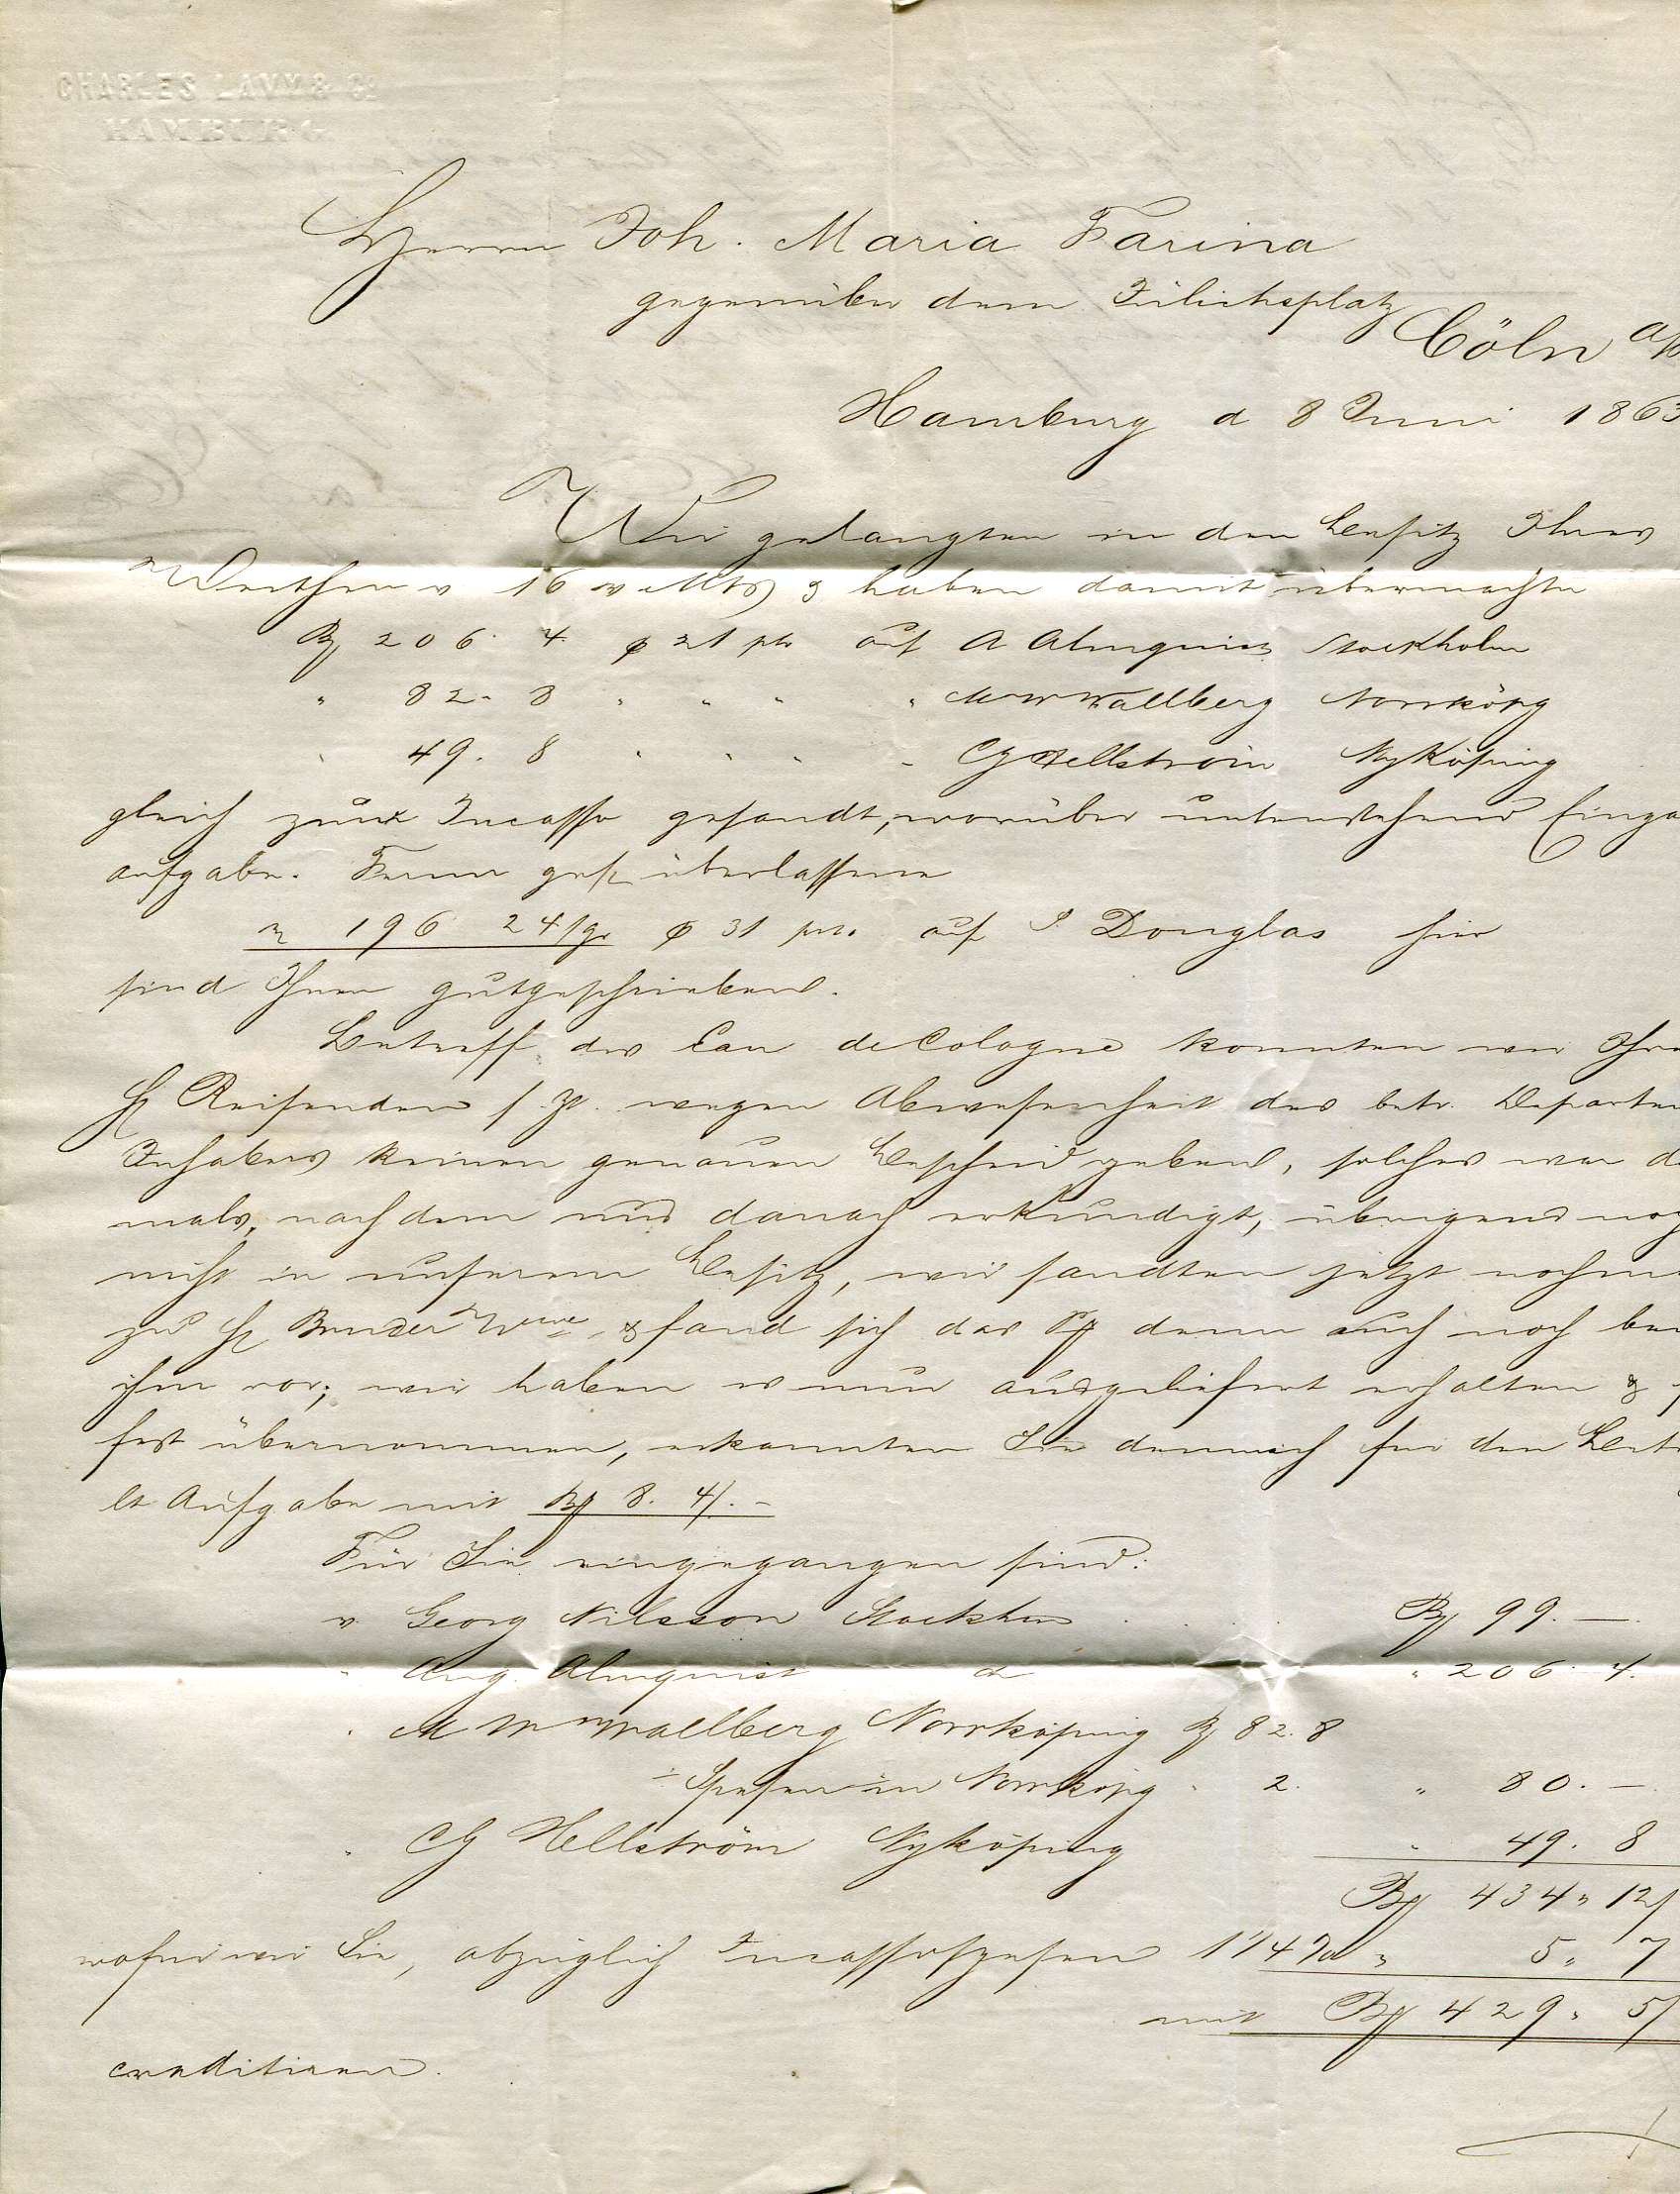 CHARLES LAMM & Co
HAMBURG
Herrn Joh. Maria Farina
gegenüber dem Jülichsplatz
Cöln a/
Hamburg d 8 Juni 1863
Wir gelangten in den Besitz Ihres
Werthen v 16 v Mts & haben damit übermachte
206. 4. 21 auf A Almquist Stockholm
" 82. 8 " " " " M W Wallberg Norrköpg
" 49. 8 " " " " CG Hellström Nyköping
gleich zum Incasso gesandt, worüber untenstehend Einga
aufgabe. Ferner gefl überlassene
196 24 sgr 31 auf Douglas hier
sind Ihnen gutgeschrieben.
Betreff des Eau de Cologne konnten wir Ihre
H Reisenden s. Zt. wegen Abwesenheit des betr. Departe
Inhabers keinen genauen Bescheid geben, solches war da
mals, nachdem uns danach erkundigt, übrigens noch
nicht in unserem Besitz, wir sandten jetzt nochm
zu H Wwe & fand sich das denn auch noch bei
ihm vor; wir haben es nun ausgeliefert erhalten &
fest übernommen, erkannten Sie demnach für den Betr
lt Aufgabe mit 8. 4/. -
Für Sie eingegangen sind:
v Georg Nilsson Stockholm 99. —
" Aug. Almquist do " 206. 4.
" M W Wallberg Norrköping 82. 8
÷ Spesen in Norrköpg " 2. " 80. —
" CG Hellström Nyköping " 49. 8
434 " 12/
wofür wir Sie, abzüglich Incassospesen 1 1/4 % " 5 " 7
mit 429 " 5/
creditiren.